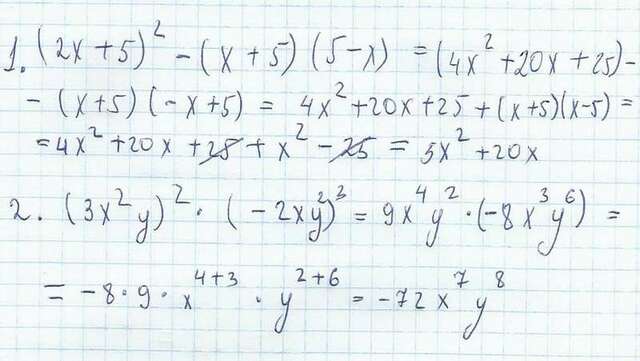 1. (2x+5)² - (x+5)(5-x) = (4x²+20x+25)-
- (x+5)(-x+5) = 4x²+20x+25+(x+5)(x-5) =
= 4x²+20x+25+x²-25 = 5x²+20x
2. (3x²y)² · (-2xy²)³ = 9x⁴y² · (-8x³y⁶) =
= -8·9·x⁴⁺³ · y²⁺⁶ = -72x⁷y⁸